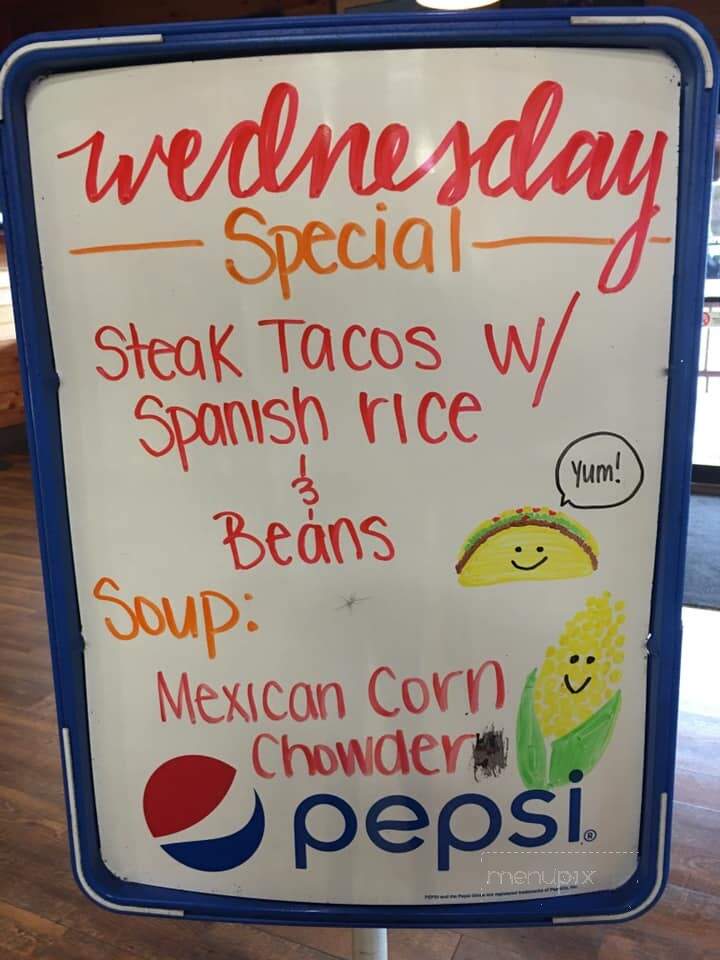 wednesday
Special
Steak Tacos w/
Spanish rice
&
Beans
Yum!
Soup:
Mexican Corn
Chowder
pepsi®
menupix